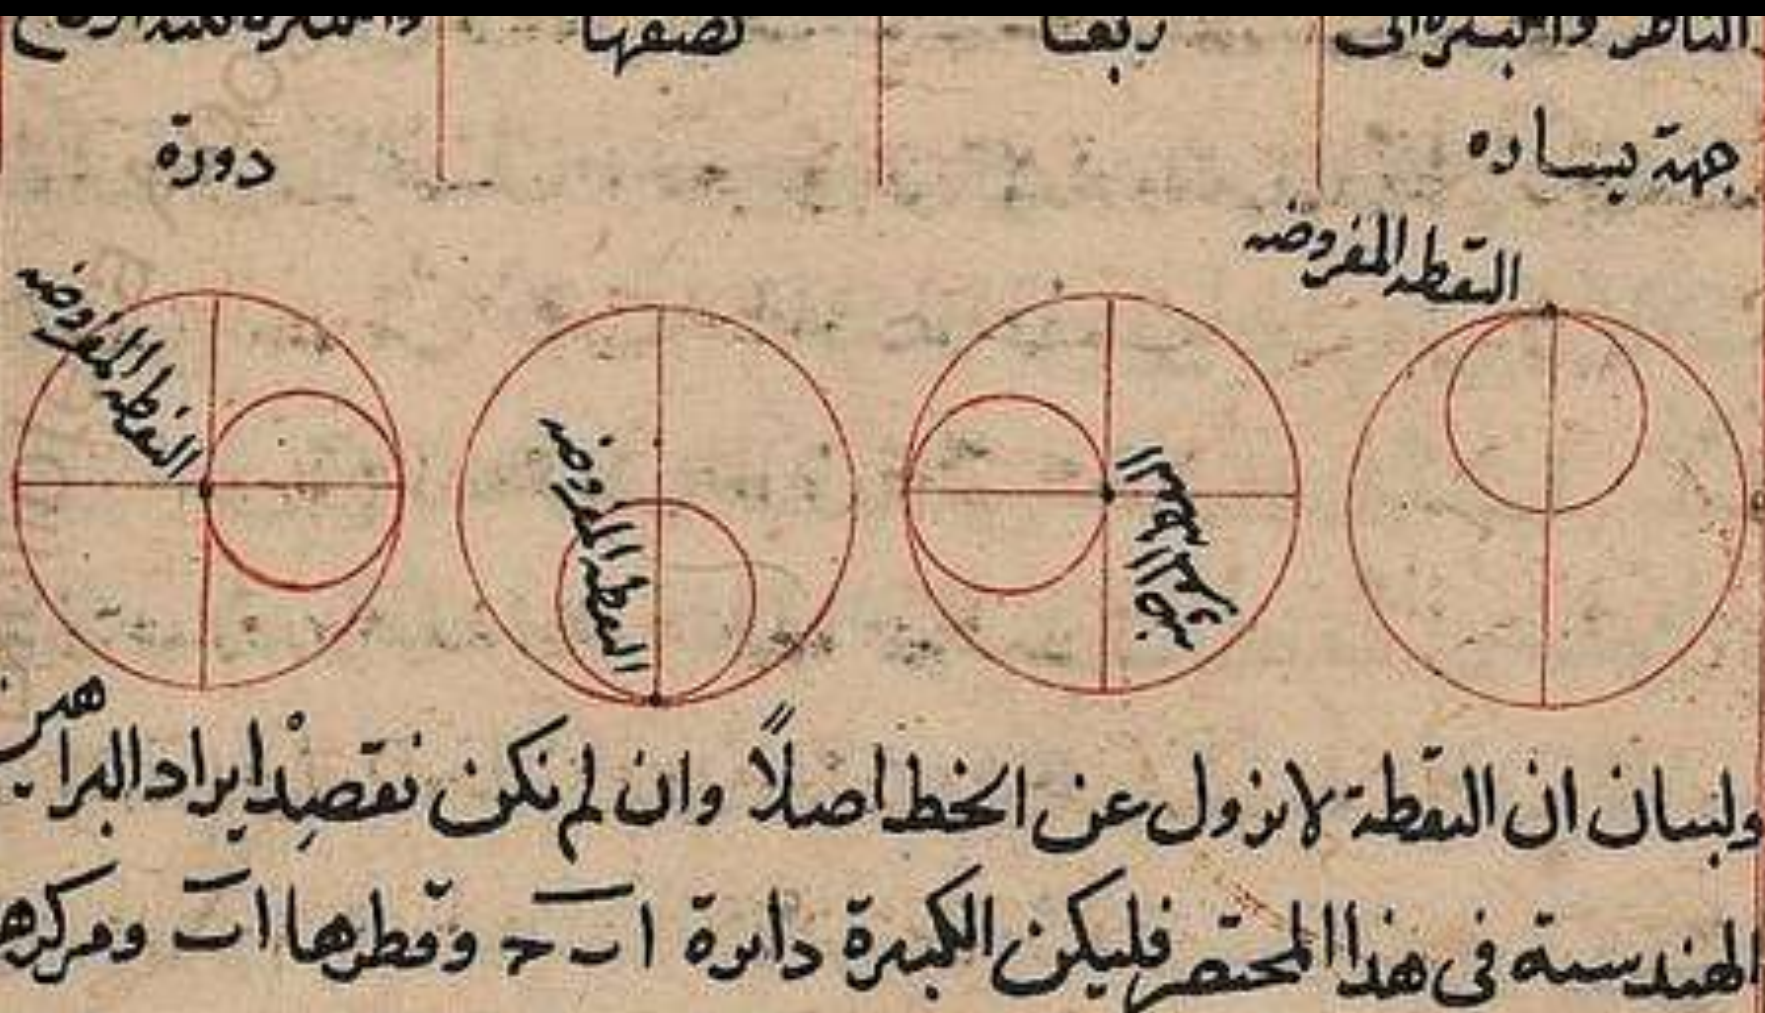 الناظر والكبيرة الى
جهة يساره
ربعا
نصفها
دورة
النقطة المفروضه
النقطة المفروضه
النقطه المفروضه
النقطه المفروضه
ولبيان ان النقطة لا تزول عن الخط اصلاً وان لم نكن نقصِدْ ايراد البراهين
الهندسية فى هذا المختصر فليكن الكبيرة دايرة ا ب ج وقطرها ا ب ومركزها